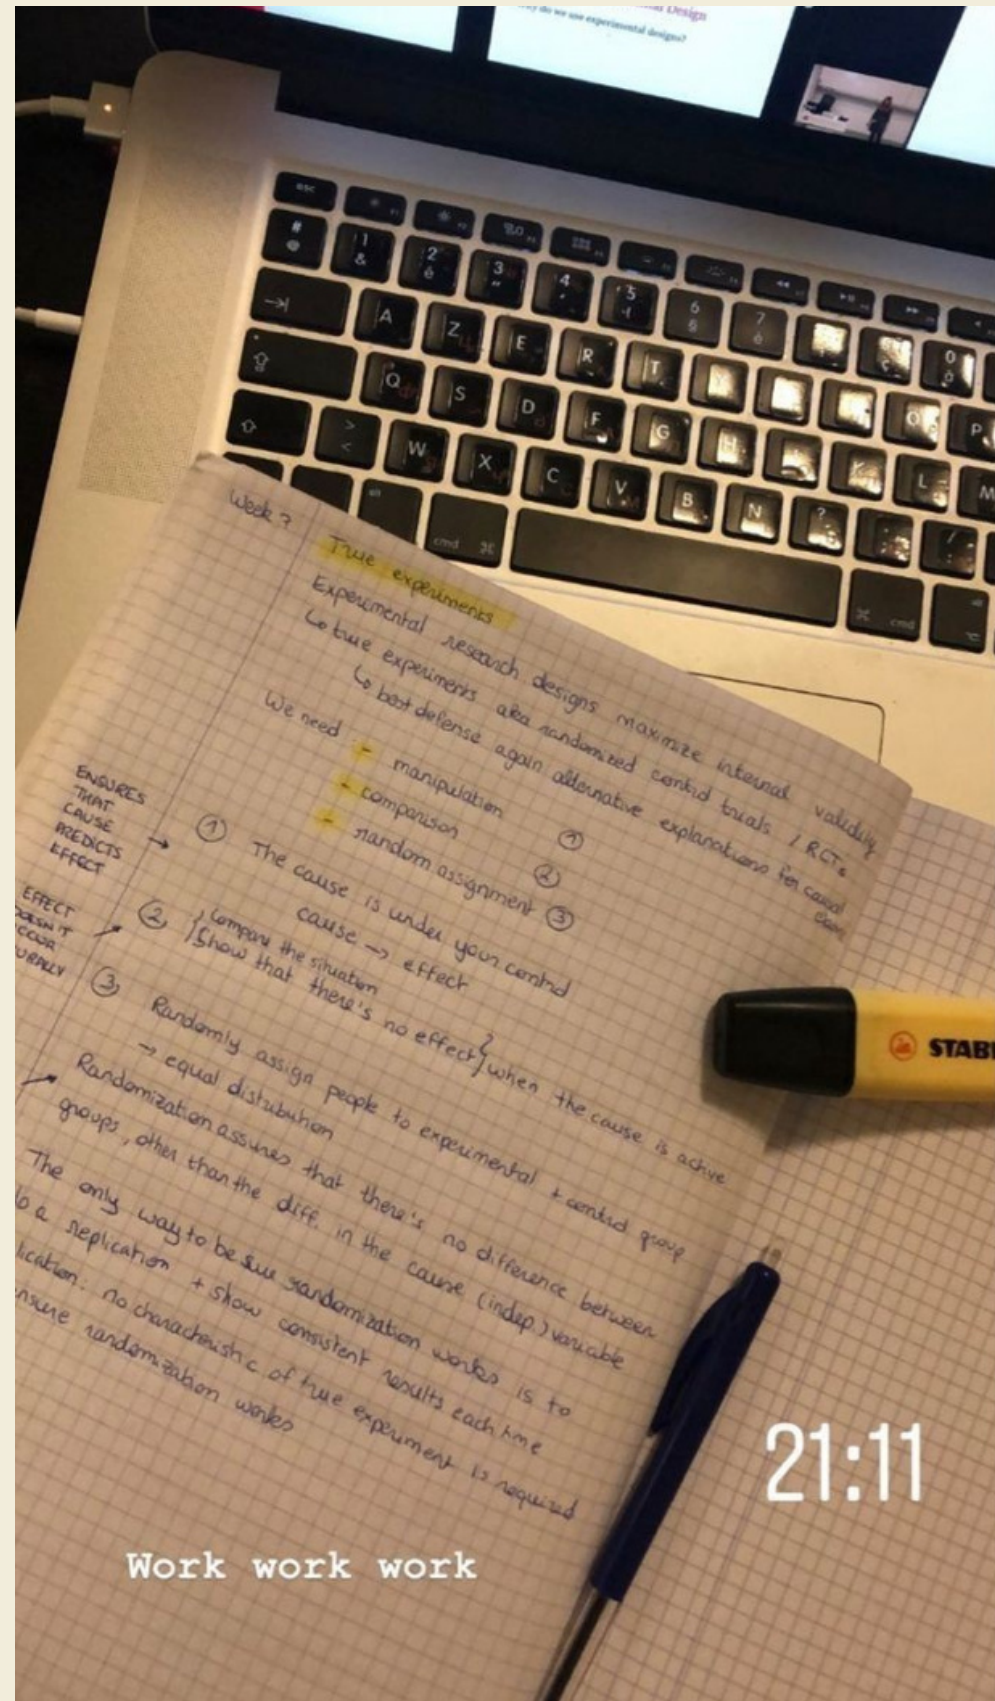 Design
do we use experimental designs?
esc
# @
1 &
2 é
3 "
4 '
5 (
6 §
7 è
0 à
A Z E R T O P
Q S D F G H K L M
> <
W X C V B N ?
cmd ⌘
⌘ cmd
Week 7
True experiments
Experimental research designs maximize internal validity
↳ true experiments aka randomized control trials / RCTs
↳ best defense again alternative explanations for causal
We need - manipulation ①
- comparison ②
- random assignment ③
ENSURES
THAT
CAUSE
PREDICTS
EFFECT →
① The cause is under your control
cause → effect
EFFECT
② Compare the situation
Show that there's no effect } when the cause is active
③ Randomly assign people to experimental + control group
→ equal distribution
Randomization assures that there's no difference between
groups, other than the diff. in the cause (indep.) variable
The only way to be sure randomization works is to
a replication + show consistent results each time
no characteristic of true experiment is required
randomization works
STAB
21:11
Work work work